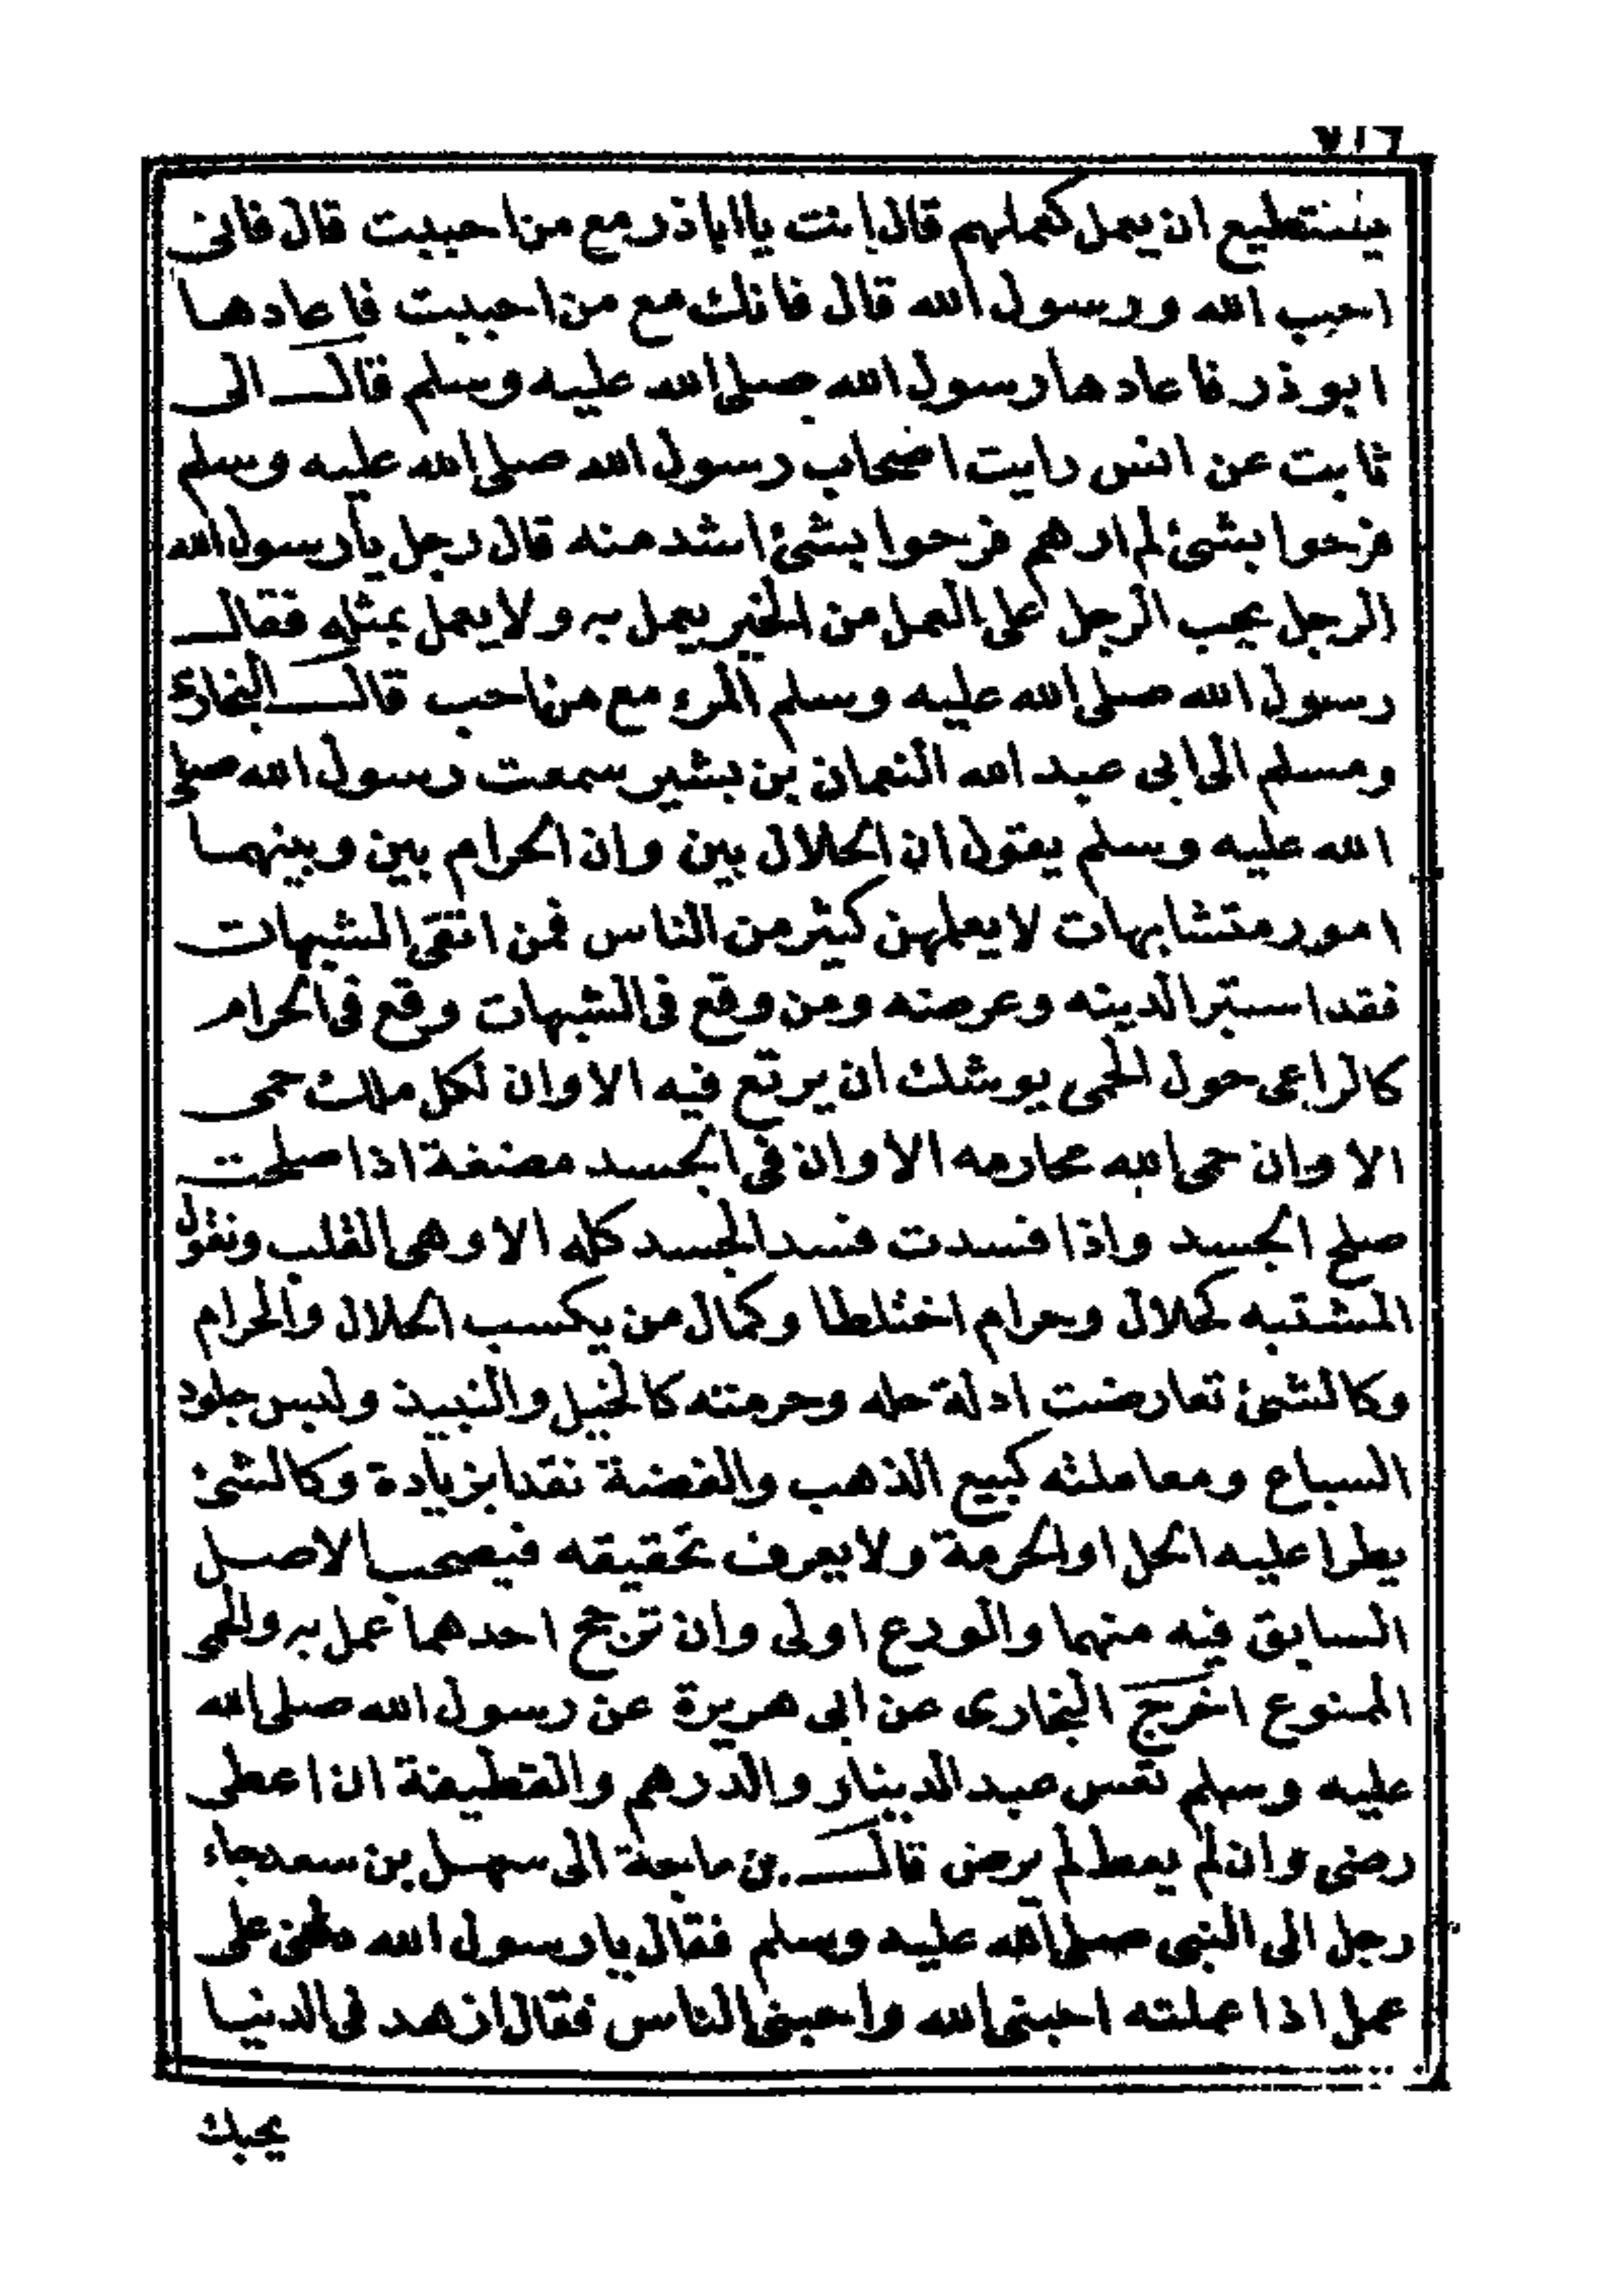 يستطيع ان يعمل كعملهم قال انت يا اباذر مع من احببت قال فانى
احب الله ورسول الله قال فانك مع من احببت فاعادها
ابوذر فاعادها رسول الله صلى الله عليه وسلم قال الى
ثابت عن انس رايت اصحاب رسول الله صلى الله عليه وسلم
فرحوا بشئ لم ارهم فرحوا بشئ اشد منه قال رجل يا رسول الله
الرجل يحب الرجل على العمل من الخير يعمل به ولا يعمل بمثله فقال
رسول الله صلى الله عليه وسلم المرء مع من احب قال البخارى
ومسلم الى ابى عبد الله النعمان بن بشير سمعت رسول الله صلى
الله عليه وسلم يقول ان الحلال بين وان الحرام بين وبينهما
امور متشابهات لا يعلمهن كثير من الناس فمن اتقى الشبهات
فقد استبرا لدينه وعرضه ومن وقع فى الشبهات وقع فى الحرام
كالراعى حول الحمى يوشك ان يرتع فيه الا وان لكل ملك حمى
الا وان حمى الله محارمه الا وان فى الجسد مضغة اذا صلحت
صلح الجسد واذا فسدت فسد الجسد كله الا وهى القلب ونقول
المشتبه كحلال وحرام اختلطا وكمال من يكسب الحلال والحرام
وكالشئ تعارضت ادلة حله وحرمته كالخيل والنبيذ ولبس جلود
السباع ومعاملته كبيع الذهب والفضة نقدا بزيادة وكالشئ
يطرا عليه الحل او الحرمة ولا يعرف تحقيقه فيصحب الاصل
السابق فيه منهما والورع اولى وان ترجح احدهما عمل به والحمى
الممنوع اخرج البخارى عن ابى هريرة عن رسول الله صلى الله
عليه وسلم تعس عبد الدينار والدرهم والقطيفة ان اعطى
رضى وان لم يعط لم يرض قال بن ماجة الى سهل بن سعد جاء
رجل الى النبى صلى الله عليه وسلم فقال يا رسول الله دلنى على
عمل اذا عملته احبنى الله واحبنى الناس فقال ازهد فى الدنيا
يحبك